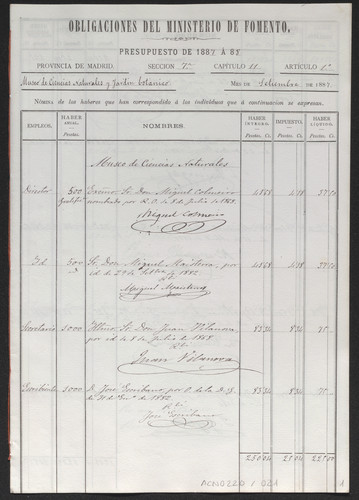 OBLIGACIONES DEL MINISTERIO DE FOMENTO.
PRESUPUESTO DE 1887 Á 88
PROVINCIA DE MADRID. SECCION 7.ª CAPÍTULO 11 ARTÍCULO 1.º
Museo de Ciencias Naturales y Jardin botanico MES DE Setiembre DE 1887.
NÓMINA de los haberes que han correspondido á los individuos que á continuacion se expresan.
EMPLEOS. HABER ANUAL. Pesetas. NOMBRES. HABER ÍNTEGRO. Pesetas. Cs. IMPUESTO. Pesetas. Cs. HABER LÍQUIDO. Pesetas. Cs.
Museo de Ciencias Naturales
Director 500 Excmo. Sr. Don Miguel Colmeiro
nombrado por R. O. de 8 de Julio de 1868.
Miguel Colmeiro
Id 500 Sr. Don Miguel Maisterra, por
id de 29 de 1882.
Miguel Maisterra
Secretario Iltmo. Sr. Don Juan Vilanova,
por id de 8 de Julio de 1868
Juan Vilanova
Escribiente D. José Escribano, por O. de la D. G.
de 31 de 1882.
José Escribano
ACN0220/021